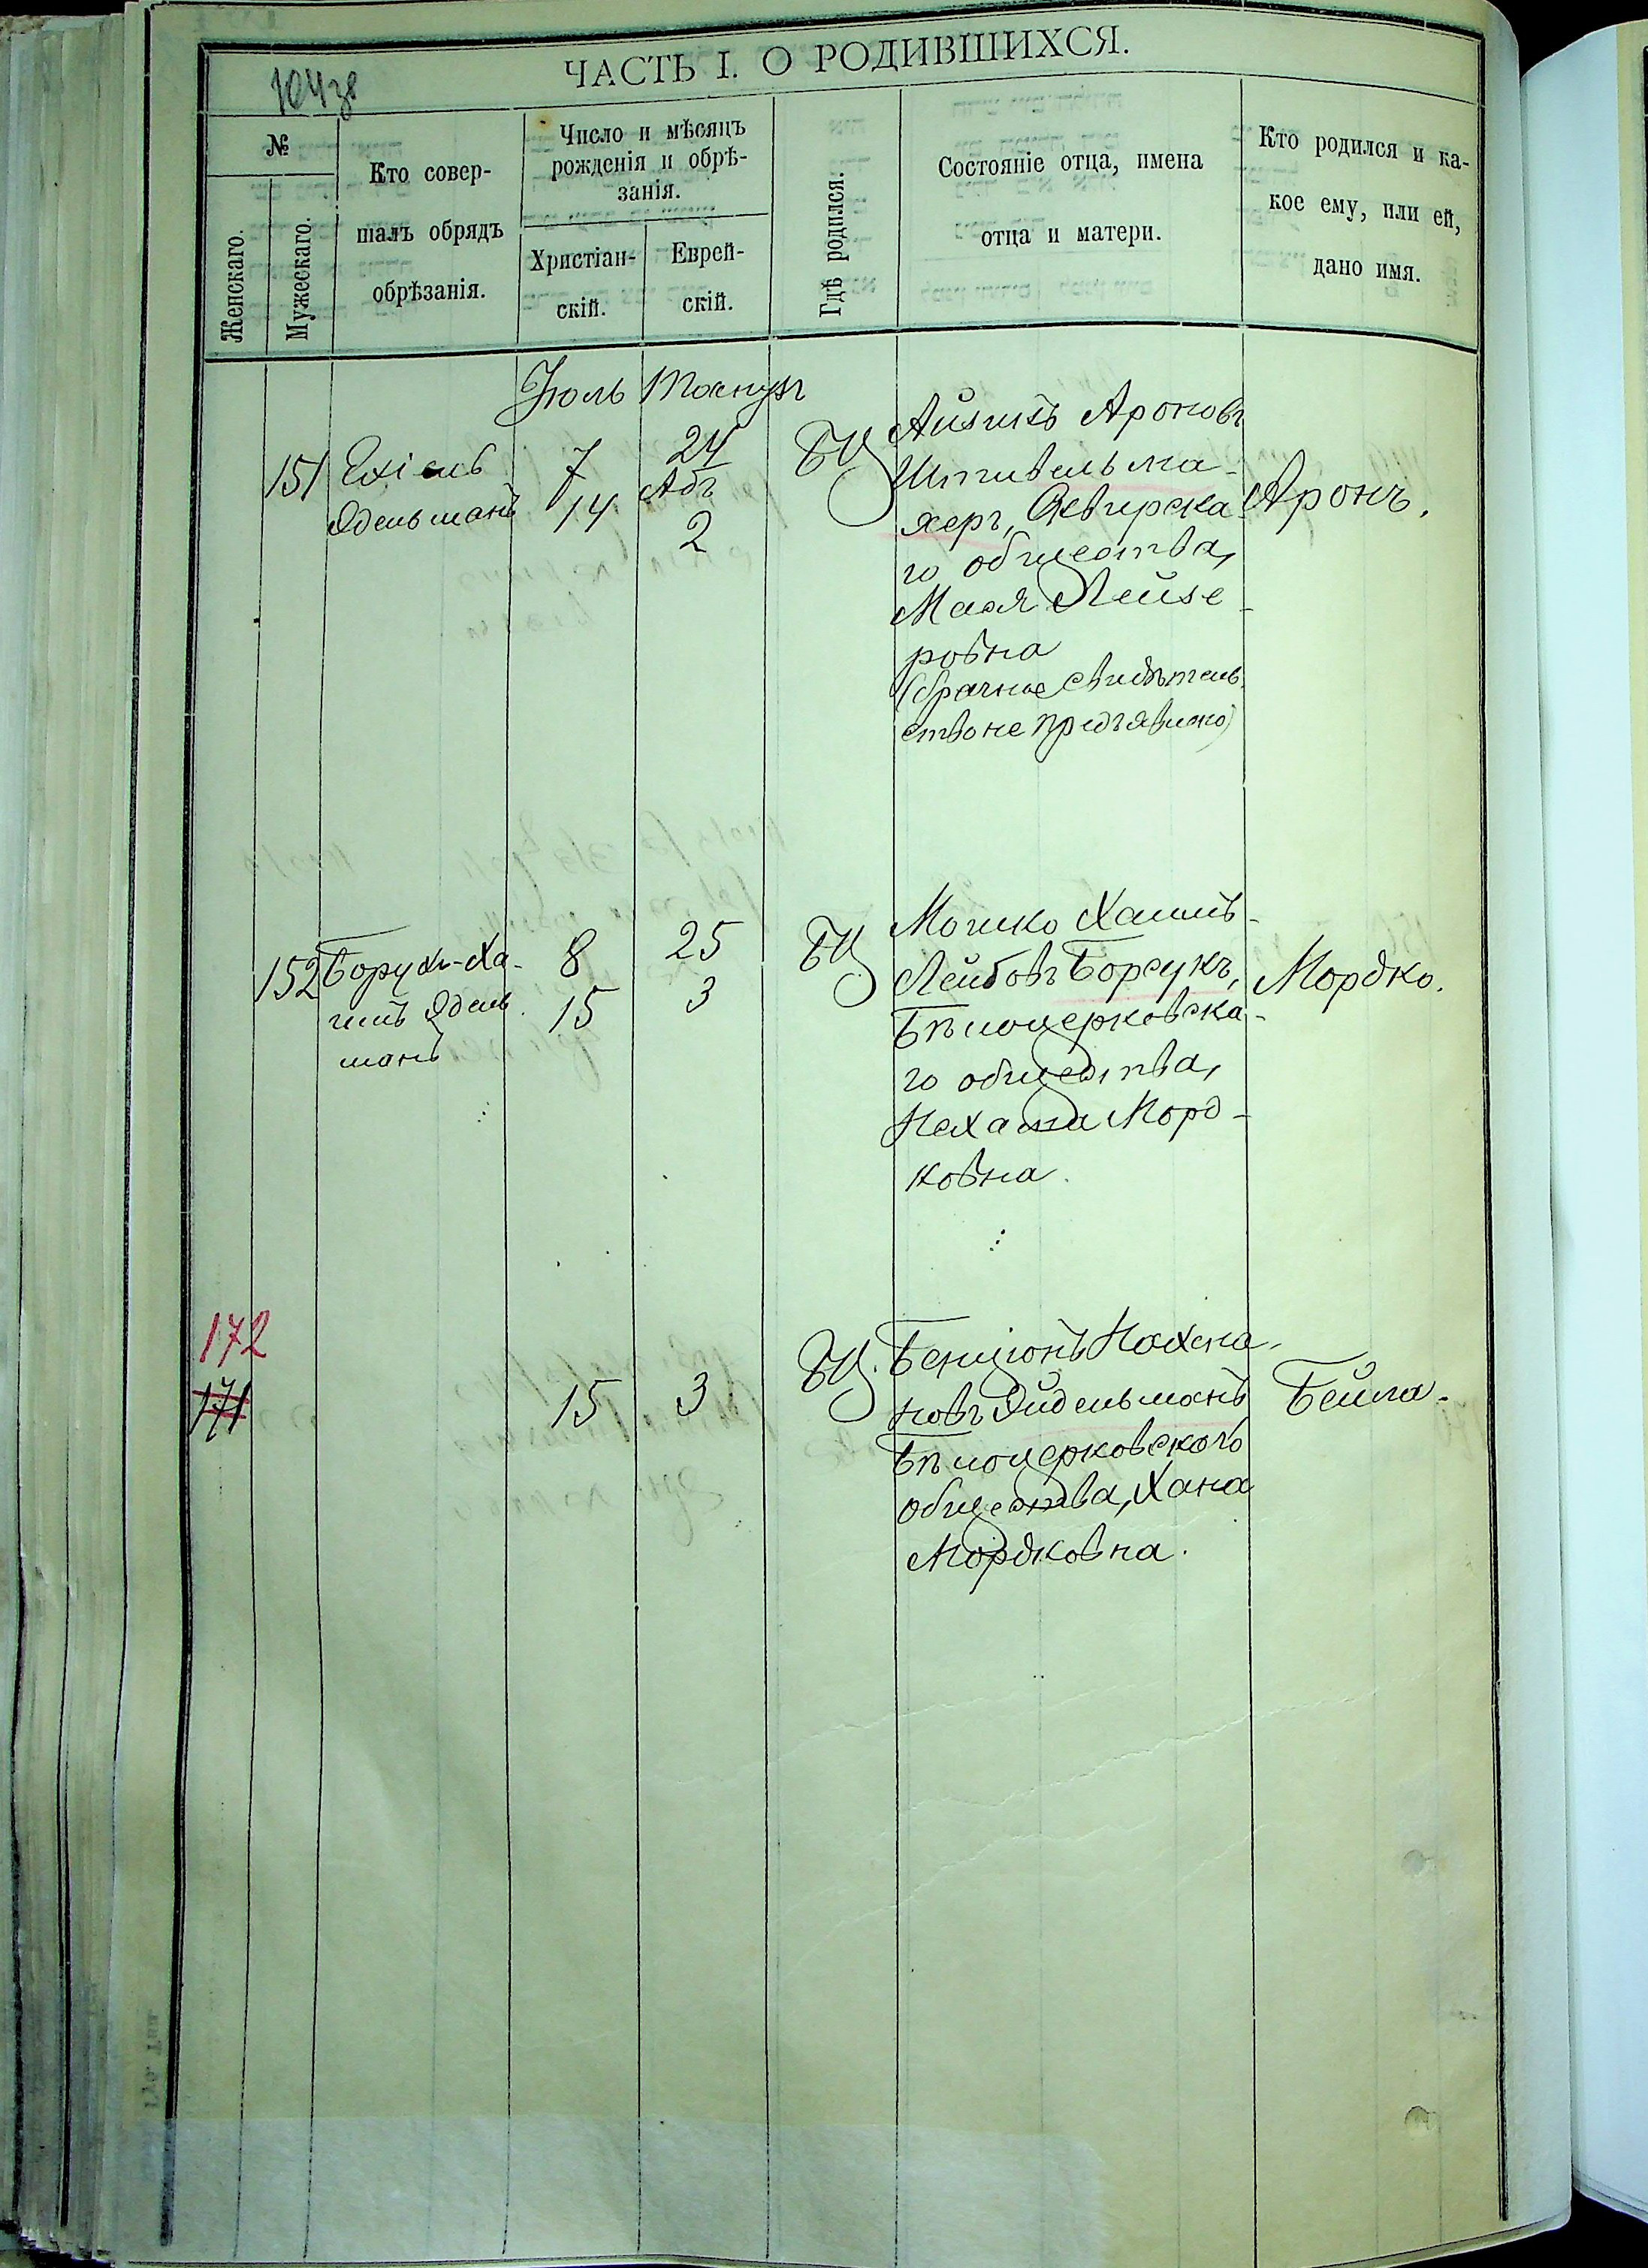 ЧАСТЬ I. О РОДИВШИХСЯ.
№
Женскаго.
Мужескаго.
Кто совер-
шалъ обрядъ
обрѣзанія.
Число и мѣсяцъ
рожденія и обрѣ-
занія.
Христіан-
скій.
Еврей-
скій.
Гдѣ родился.
Состояніе отца, имена
отца и матери.
Кто родился и ка-
кое ему, или ей,
дано имя.
Іюль
151
Ехіель
Эдельманъ
7
14
24
Абъ
2
БЦ
Айзикъ Ароновъ
Штивельма-
херъ, Сквирска-
го общества,
Лейзе-
ровна
(брачное свидѣтель-
ство не предъявлено)
Аронъ.
152
Борухъ-Ха-
имъ Эдель-
манъ
8
15
25
3
БЦ
Мошко Хаимъ-
Лейбовъ Борсукъ,
Бѣлоцерковска-
го общества,
Нехама Морд-
ковна.
Мордко.
172
171
15
3
БЦ.
Бенціонъ Нахма-
новъ Эйдельманъ
Бѣлоцерковскаго
общества, Хана
Мордковна.
Бейла.